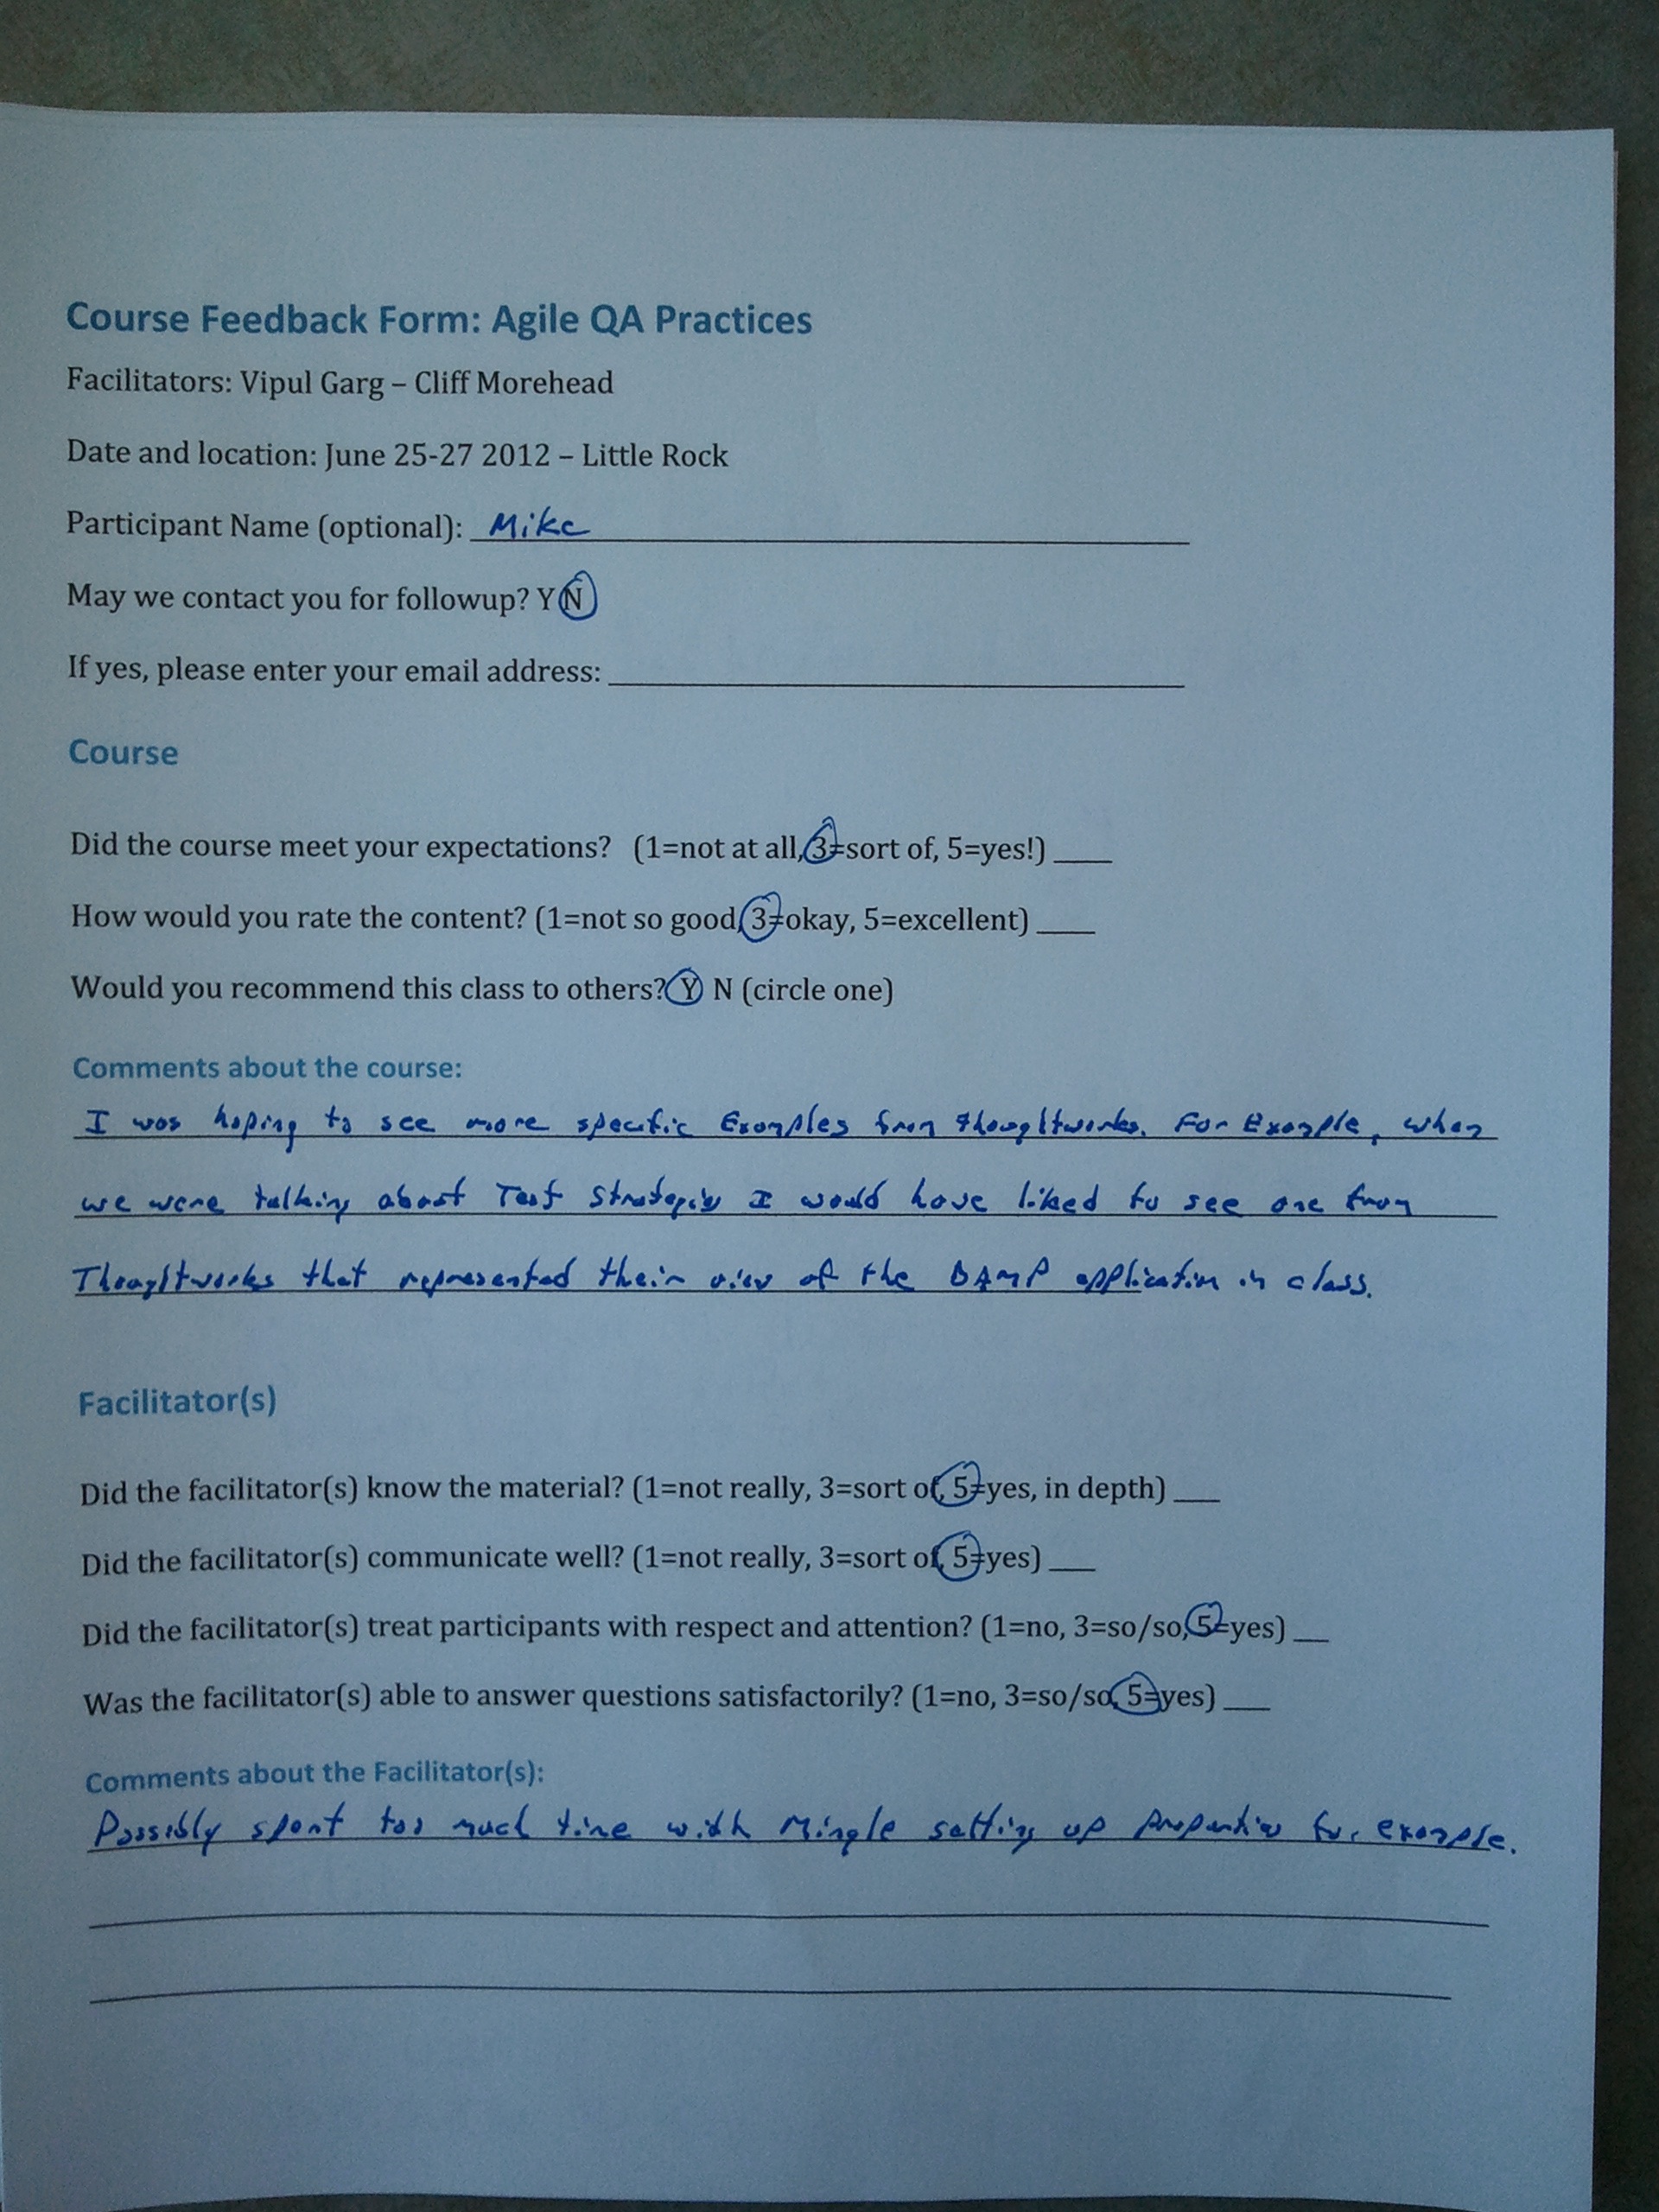 Course Feedback Form: Agile QA Practices
Facilitators: Vipul Garg – Cliff Morehead
Date and location: June 25-27 2012 – Little Rock
Participant Name (optional): Mike
May we contact you for followup? Y N
If yes, please enter your email address: ____
Course
Did the course meet your expectations? (1=not at all, 3=sort of, 5=yes!) ____
How would you rate the content? (1=not so good, 3=okay, 5=excellent) ____
Would you recommend this class to others? Y N (circle one)
Comments about the course:
I was hoping to see more specific Examples from Thoughtworks. For Example, when
we were talking about Test Strategies I would have liked to see one from
Thoughtworks that represented their view of the BAMP application in class.
Facilitator(s)
Did the facilitator(s) know the material? (1=not really, 3=sort of, 5=yes, in depth) ___
Did the facilitator(s) communicate well? (1=not really, 3=sort of, 5=yes) ___
Did the facilitator(s) treat participants with respect and attention? (1=no, 3=so/so, 5=yes) __
Was the facilitator(s) able to answer questions satisfactorily? (1=no, 3=so/so, 5=yes) ___
Comments about the Facilitator(s):
Possibly spent too much time with Mingle setting up properties for example.